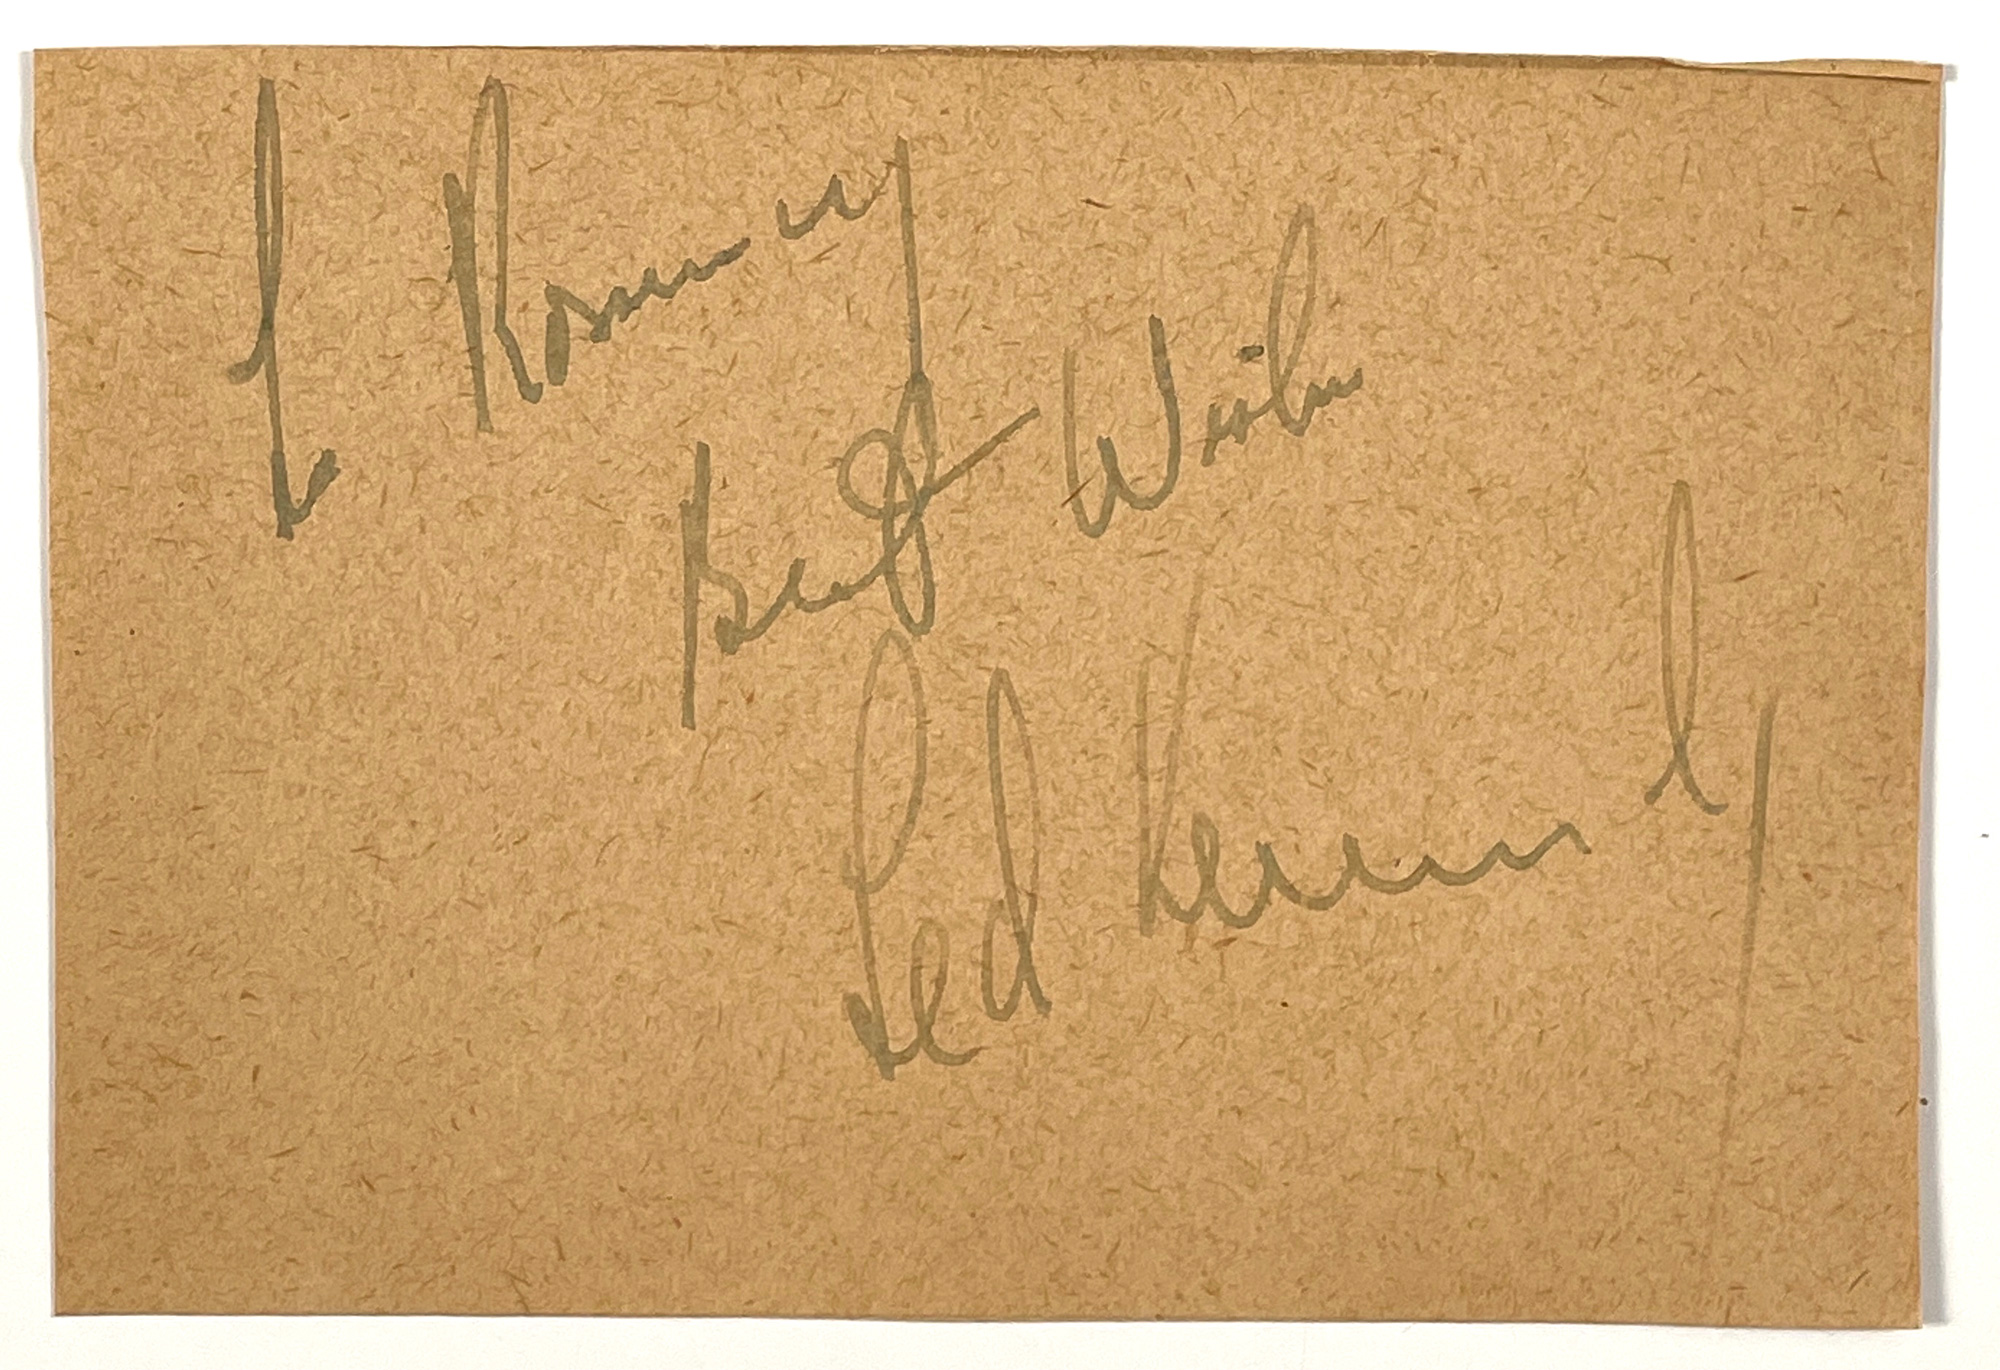 To Rosemary
Best Wishes
Ted Kennedy